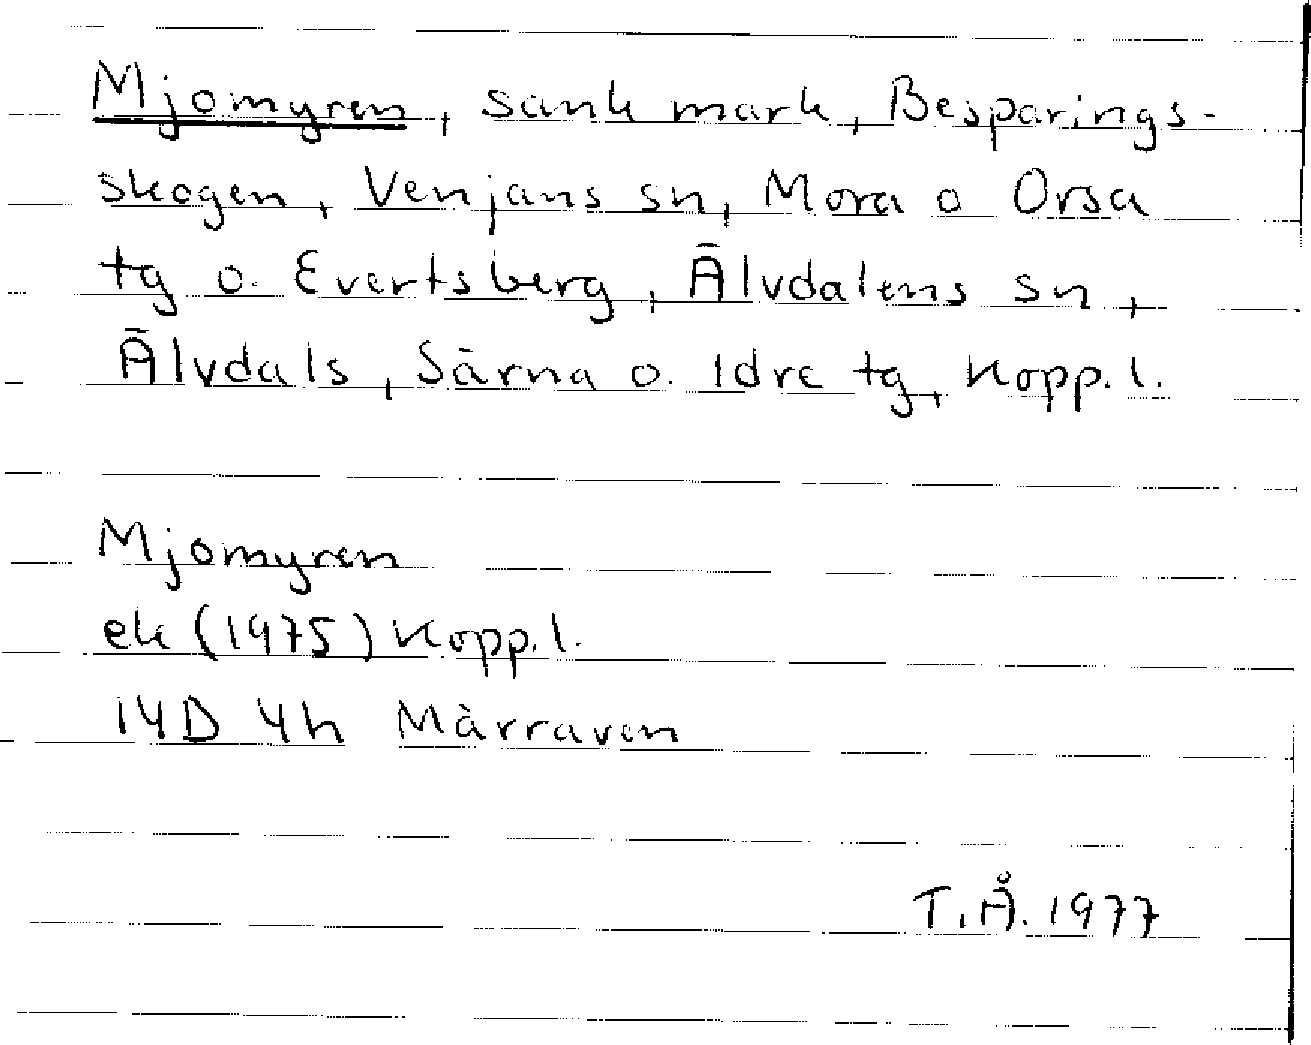 Mjomyren, sank mark, Besparings-
skogen, Venjans sn, Mora o Orsa
tg o. Evertsberg, Älvdalens sn,
Älvdals, Särna o. Idre tg, Kopp.l.
Mjomyren
ek (1975) Kopp.l.
14D 4h Märraven
T.Å. 1977